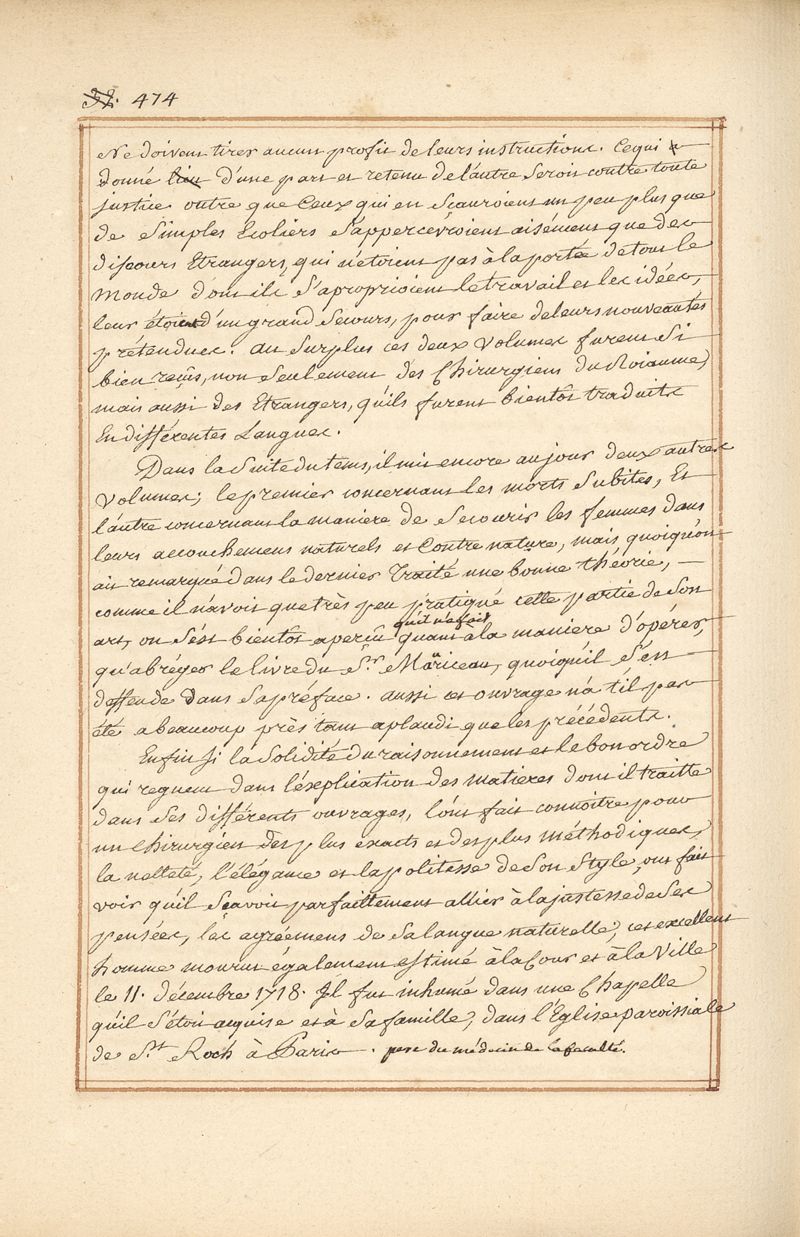 32. 474
Ne doivent tirer aucun profit de leurs instructions. Ce qui
donné lieu d'une part et retenu de l'autre seroit contre toute
justice outre que Ceux qui en Scauroient un peu plus que
de Simples Ecoliers S'appercevroient aisément que des
discours Etrangers, qui n'étoient pas à la portée de tout le
monde dont ils S'aproprioient le travail et les idées,
leur étoient d'un grand Secours, pour faire de leurs nouveautés
prétendues. au Surplus ces deux volumes furent Si
bien reçûs, non Seulement des Chirurgiens du Roiaume,
mais aussi des Etrangers, qu'ils furent bientôt traduits
En différentes Langues.
Dans la Suite du tems, il mit encore au jour deux autres
volumes; le premier concernant les morts Subites, Et
l'autre concernant la maniere de Secourir les femmes dans
leurs accouchemens naturels et Contre nature, mais quoiqu'on
ait remarqué dans le dernier Traité une bonne théorie, —
comme il n'avoit que très peu pratiqué cette partie de Son
art, on S'est bientôt aperçu quant à la maniere d'opérer,
qu'il n'a fait
qu'abréger le livre du Sr. Mauriceau, quoiqu'il S'en
deffende dans Sa préface. aussi cet ouvrage n'a t'il pas
été a beaucoup près tant aplaudi que les précédents.
Enfin Si la Solidité du raisonnement et le bon ordre
qui regnent dans l'éxplication des matieres dont il traitte
dans Ses différents ouvrages, l'ont fait connoître pour
un Chirurgien des plus exacts et des plus méthodiques,
la netteté, l'élégance et la politesse de Son Style, ont fait
voir qu'il Scavoit parfaittement allier à la justesse de Ses
pensées, les agréemens de Sa langue naturelle; cet excellent
homme mourut également estimé à la Cour et à la Ville
le 11. décembre 1718. Il fut inhumé dans une Chapelle
qu'il S'étoit acquise et à Sa famille, dans l'Eglise paroissiale
de St. Roch à Paris. pere du médecin de la faculté.